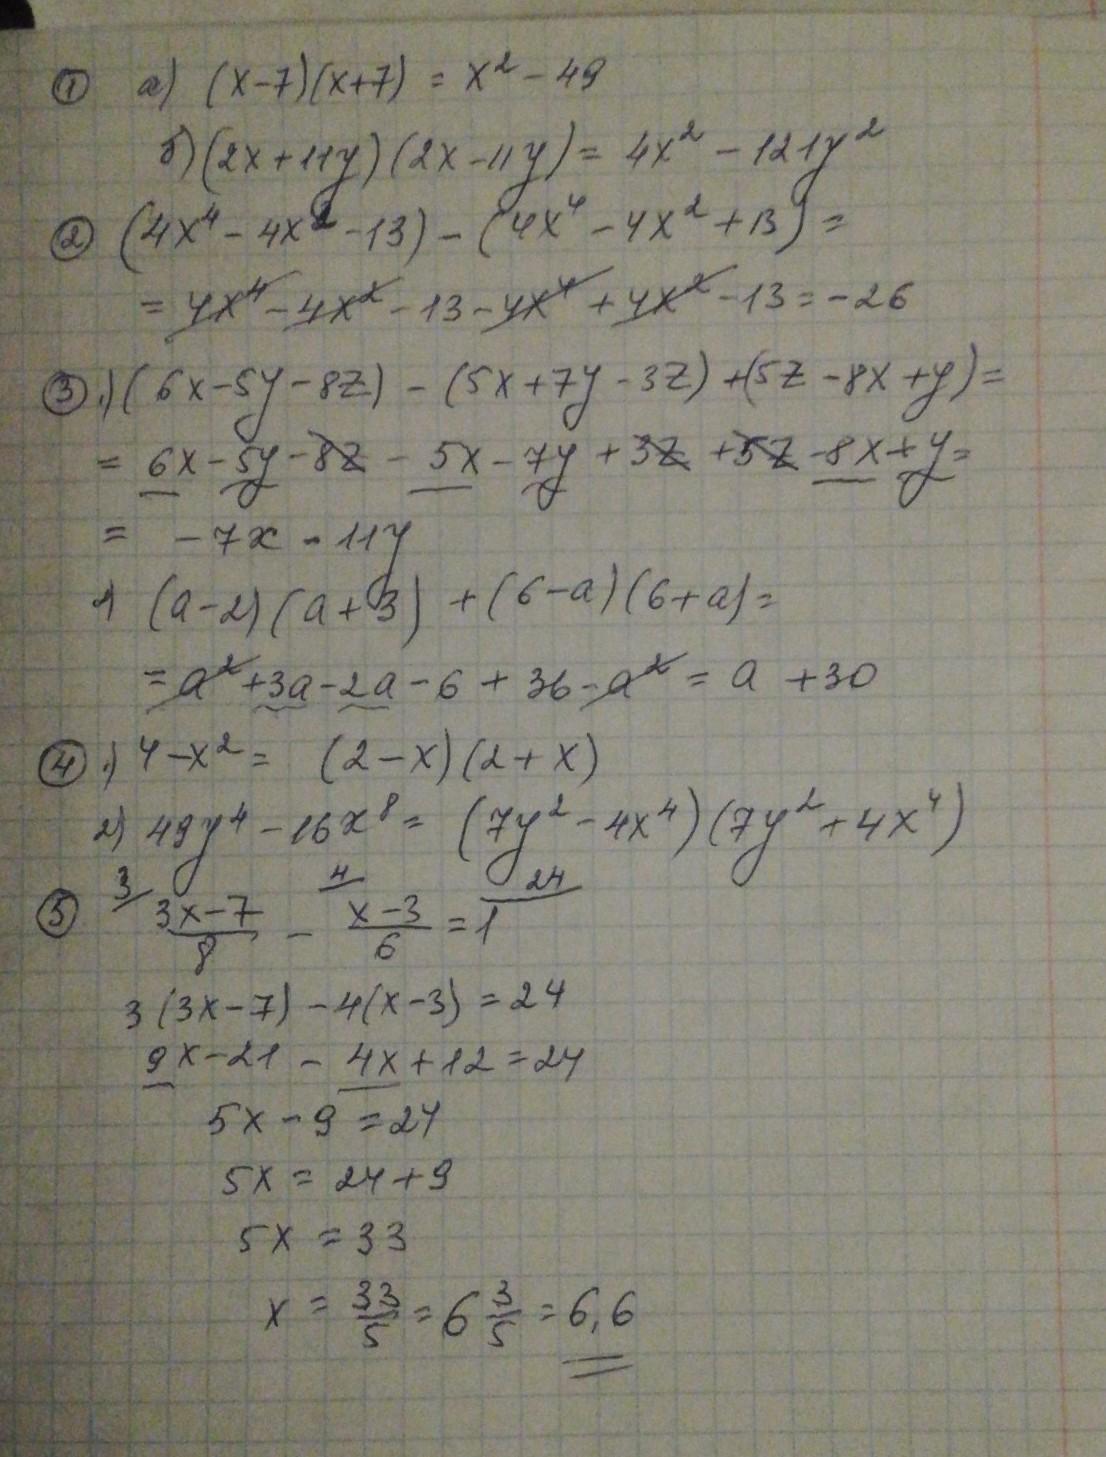 ① а) (x-7)(x+7) = x² - 49
б) (2x+11y)(2x-11y) = 4x² - 121y²
② (4x⁴ - 4x² - 13) - (4x⁴ - 4x² + 13) =
= 4x⁴ - 4x² - 13 - 4x⁴ + 4x² - 13 = -26
③ 1) (6x - 5y - 8z) - (5x + 7y - 3z) + (5z - 8x + y) =
= 6x - 5y - 8z - 5x - 7y + 3z + 5z - 8x + y =
= -7x - 11y
2) (a-2)(a+3) + (6-a)(6+a) =
= a² + 3a - 2a - 6 + 36 - a² = a + 30
④ 1) 4 - x² = (2-x)(2+x)
2) 49y⁴ - 16x⁸ = (7y² - 4x⁴)(7y² + 4x⁴)
3/ 4/ 24/
⑤ (3x-7)/8 - (x-3)/6 = 1
3(3x-7) - 4(x-3) = 24
9x - 21 - 4x + 12 = 24
5x - 9 = 24
5x = 24 + 9
5x = 33
x = 33/5 = 6 3/5 = 6,6